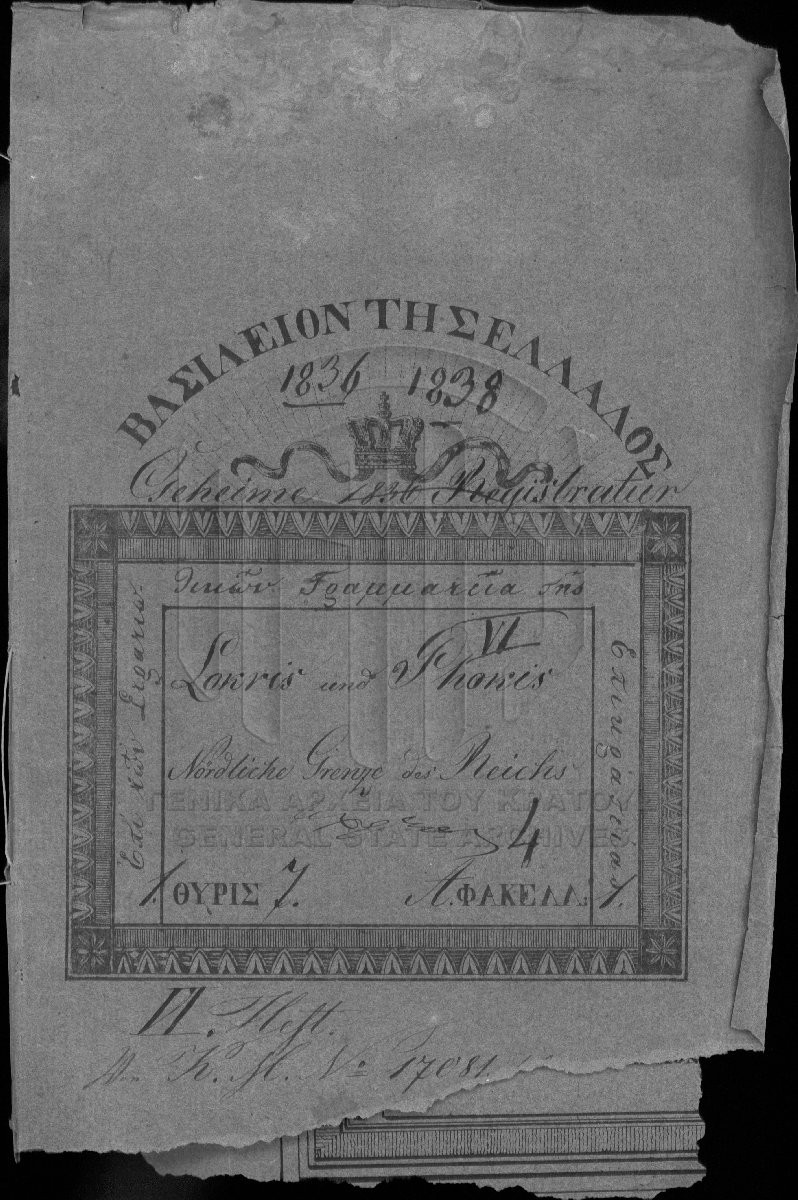 ΒΑΣΙΛΕΙΟΝ ΤΗΣ ΕΛΛΑΔΟΣ
1836 1838
Geheime 1836 Registratur
Γραμματεία της
Επικρατείας
Επί των
VI
Lokris und Phokis
Nördliche Grenze des Reichs
ΓΕΝΙΚΑ ΑΡΧΕΙΑ ΤΟΥ ΚΡΑΤΟΥΣ
GENERAL STATE ARCHIVES
4
1. ΘΥΡΙΣ 7. Α. ΦΑΚΕΛΛ: 1.
VI. Heft.
K. M. No 17081.